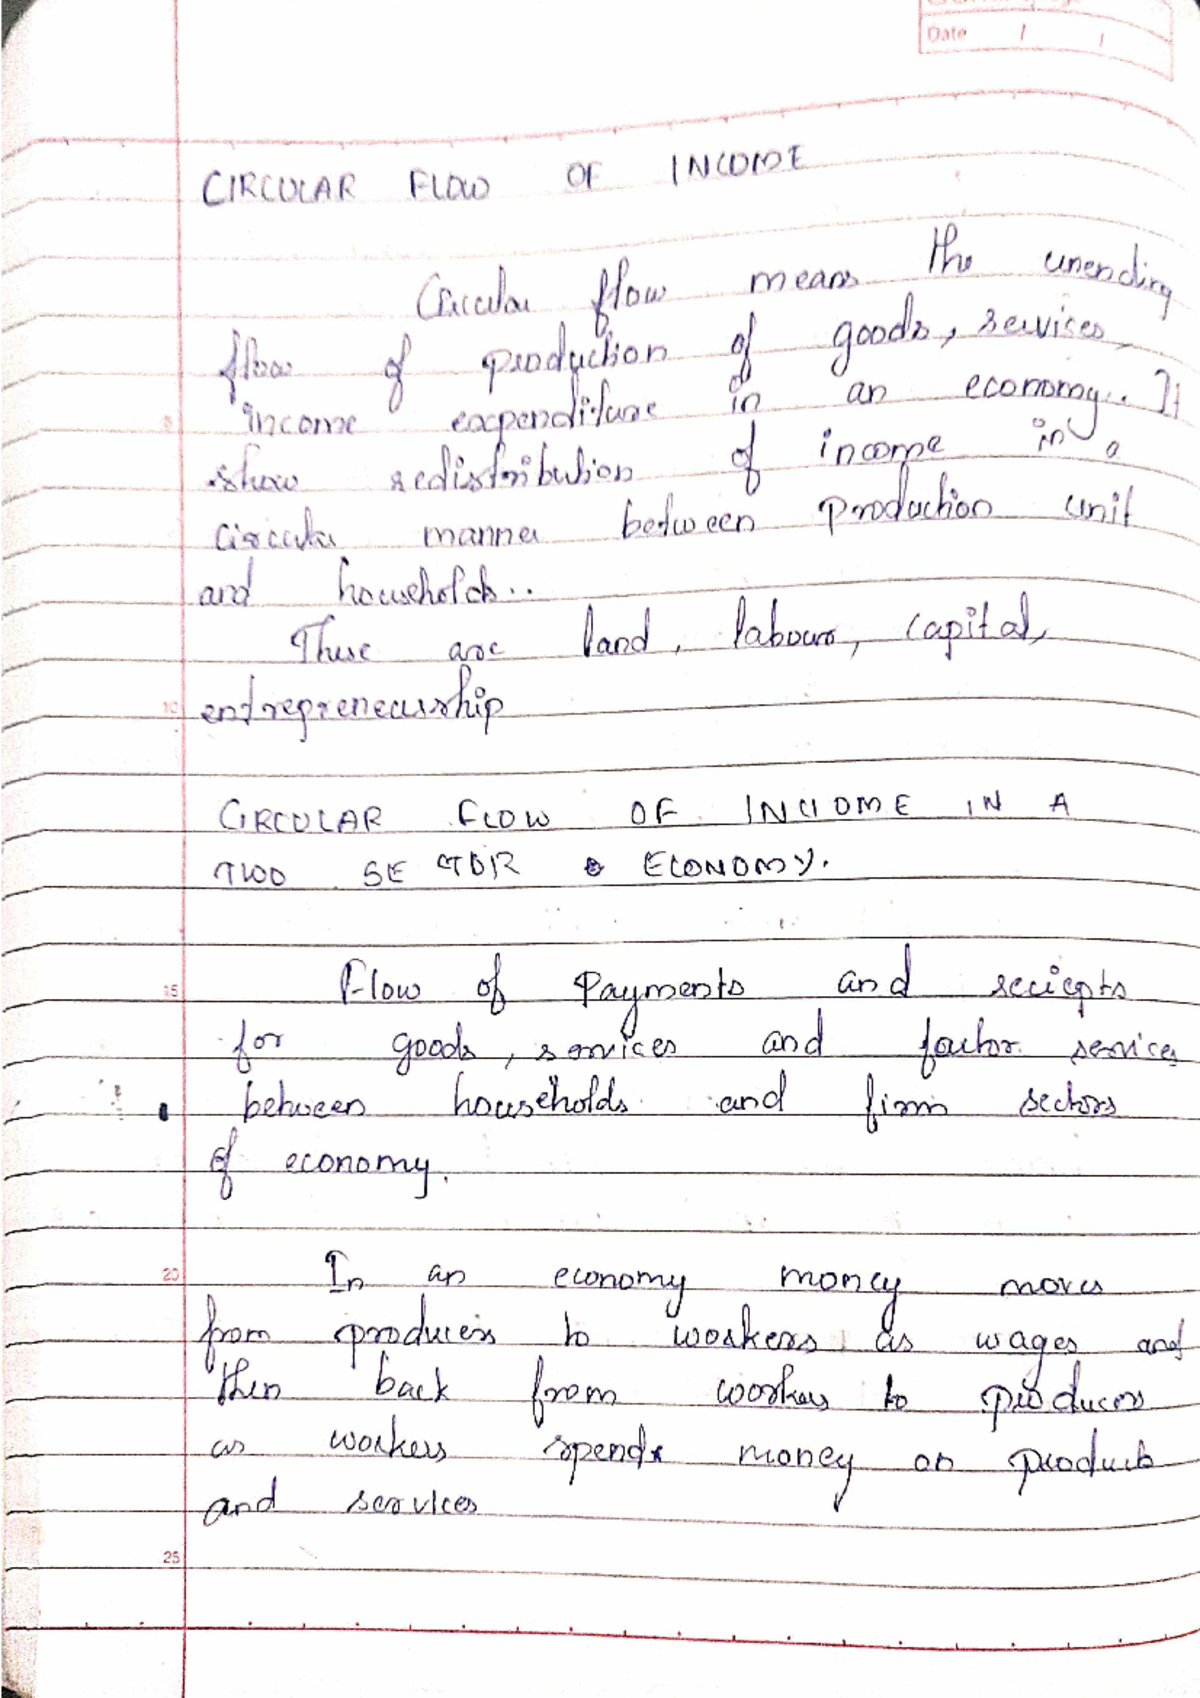 Date / /
CIRCULAR FLOW OF INCOME
Circular flow means the unending
flow of production of goods, services,
income expenditure in an economy.. It
show redistribution of income in a
circular manner between production unit
and households..
These are land, labour, capital,
10 entrepreneurship
CIRCULAR FLOW OF INCOME IN A
TWO SECTOR ECONOMY.
15 Flow of Payments and reciepts
for goods, services and factor services
between households and firm sectors
of economy.
20 In an economy money moves
from producers to workers as wages and
then back from workers to producers
as workers spends money on products
and services
25